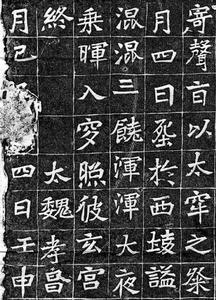 寄聲百以太牢之祭
月四日於西陵謚
混混三饒渾渾大夜
乘暉入穸照彼玄宮
終 太魏孝昌
月己 四日壬申